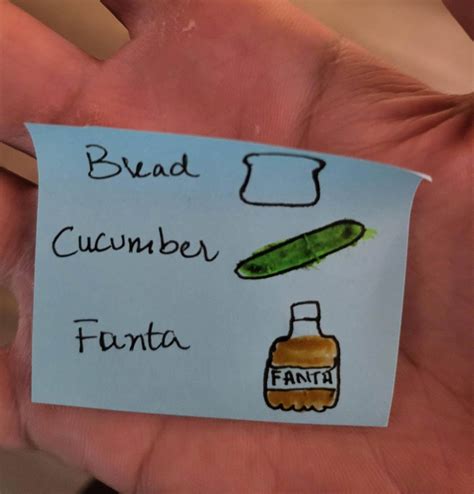 Bread
Cucumber
Fanta
FANTA